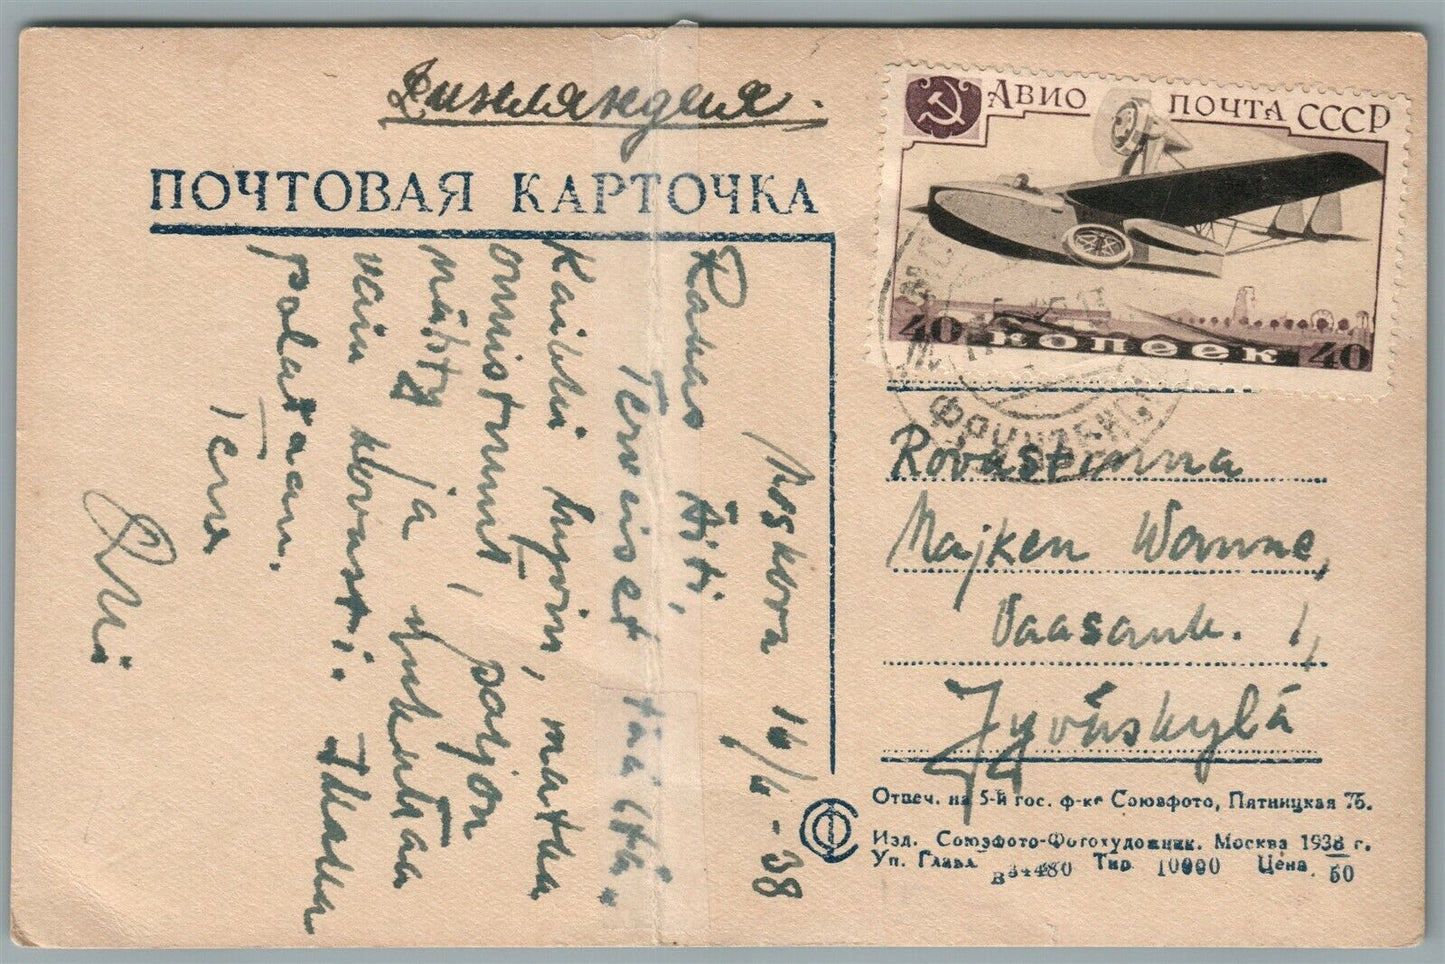 Финляндия.
ПОЧТОВАЯ КАРТОЧКА
АВИО ПОЧТА СССР
40 КОПЕЕК 40
Moskova 16/6 -38
Rakas Äiti,
Terveiset täältä.
Kaikki hyvin, matka
onnistunut, paljon
nähtty ja yritetään
vain kovasti. Ilman
palataan.
Terv
Rovastinna
Majken Wanne,
Vaasank. 1,
Jyväskylä
Отпеч. на 5-й гос. ф-ке Союзфото, Пятницкая 75.
Изд. Союзфото-Фотохудожник. Москва 1938 г.
Уп. Главл. В 34480 Тир. 10000 Цена. 50